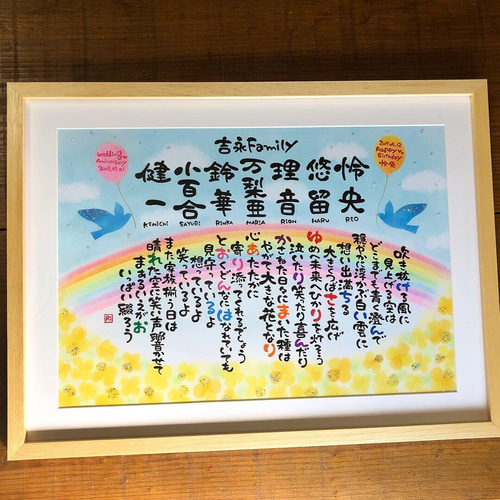 吉永Family
Wedding
Anniversary
Happy
Birthday
怜央
REO
悠留
HARU
理音
RION
万梨亜
MARIA
鈴華
小百合
SAYURI
健一
KENICHI
吹き抜ける風に
見上げる空は
どこまでも青く澄んで
穏やかに浮かぶ白い雲に
想い出満ちる
大きくつばさを広げ
ゆめへ未来へひかりを灯そう
泣いたり笑ったり喜んだり
かさねた日々にまいた種は
やがて大きな花となり
心あたたかに
寄り添ってくれるでしょう
とおくどんなにはなれていても
見守っているよ
想っているよ
笑っているよ
また家族揃う日は
晴れた空に笑い声響かせて
まあるいえがお
いっぱい綴ろう